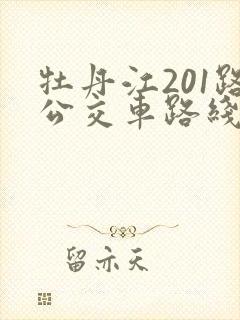 牡丹江201路
公交車路綫
留亦天